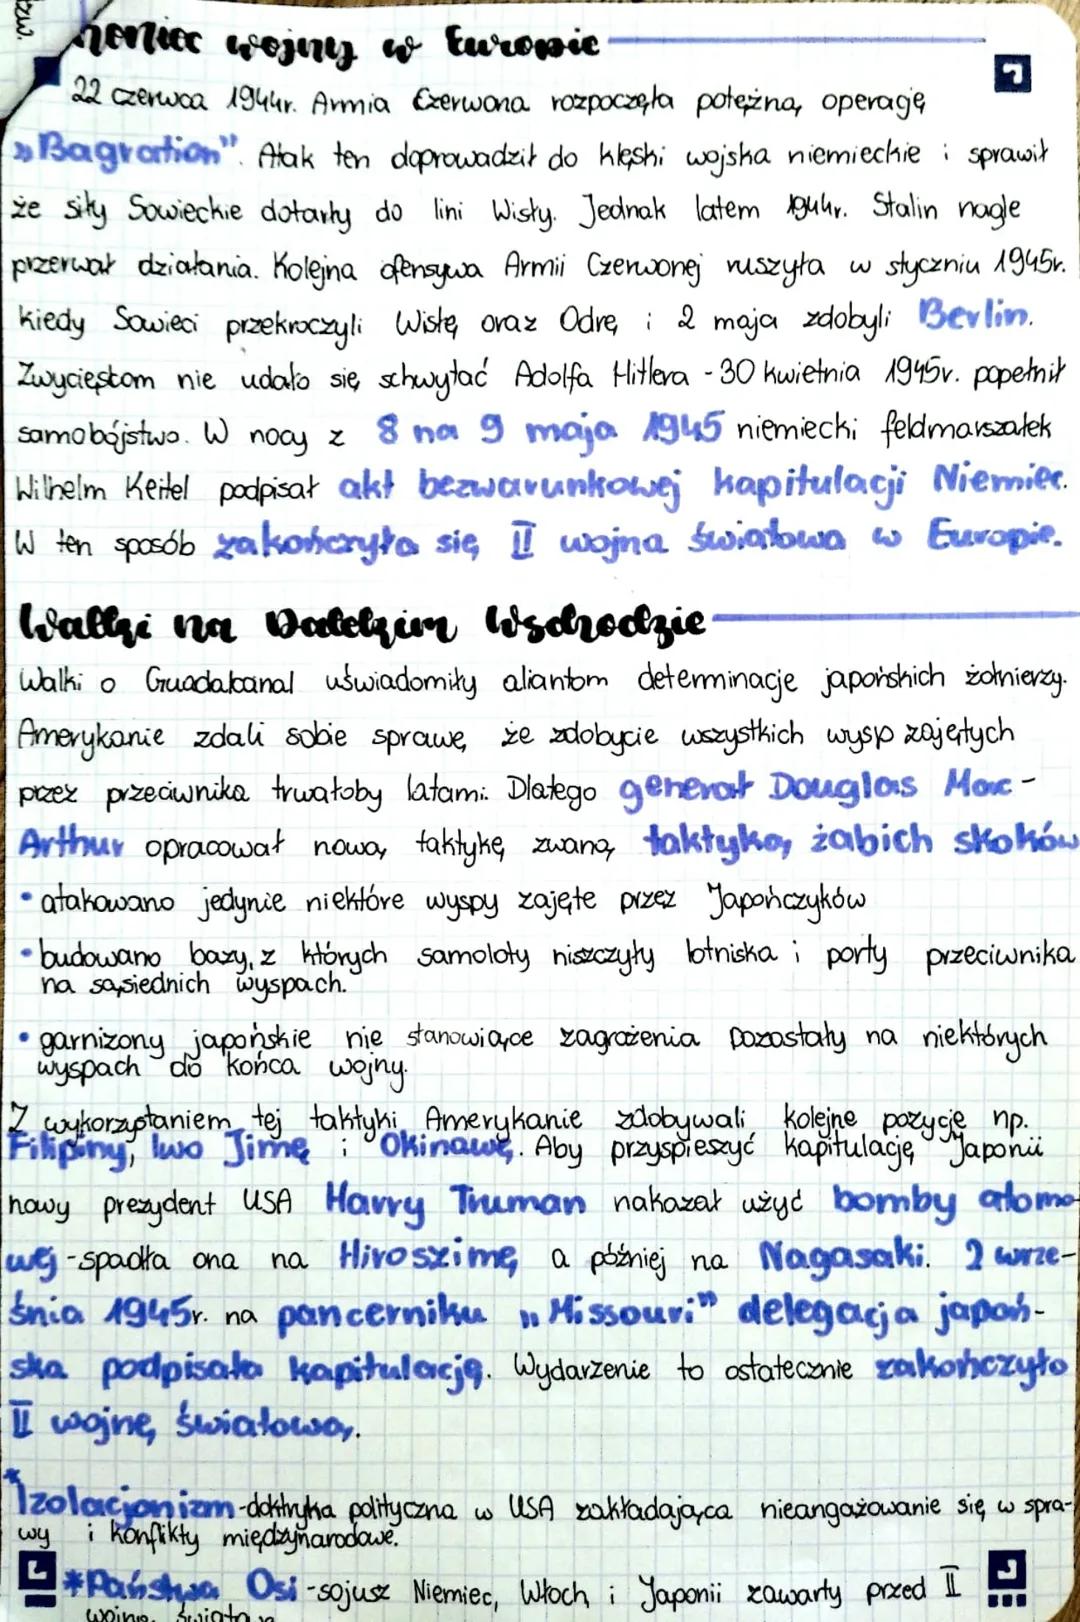 tzw.
Koniec wojny w Europie
22 czerwca 1944r. Armia Czerwona rozpoczęła potężną operację
„Bagration". Atak ten doprowadził do klęski wojska niemieckie i sprawił
że siły Sowieckie dotarły do lini Wisły. Jednak latem 1944r. Stalin nagle
przerwał działania. Kolejna ofensywa Armii Czerwonej ruszyła w styczniu 1945r.
kiedy Sowieci przekroczyli Wisłę oraz Odrę i 2 maja zdobyli Berlin.
Zwycięstom nie udało się schwytać Adolfa Hitlera - 30 kwietnia 1945r. popełnił
samobójstwo. W nocy z 8 na 9 maja 1945 niemiecki feldmarszałek
Wilhelm Keitel podpisał akt bezwarunkowej kapitulacji Niemiec.
W ten sposób zakończyła się II wojna światowa w Europie.
Walki na Dalekim Wschodzie
Walki o Guadalcanal uświadomiły aliantom determinacje japońskich żołnierzy.
Amerykanie zdali sobie sprawę, że zdobycie wszystkich wysp zajętych
przez przeciwnika trwałoby latami. Dlatego generał Douglas Mac-
Arthur opracował nową taktykę zwaną taktyką żabich skoków
• atakowano jedynie niektóre wyspy zajęte przez Japończyków
• budowano bazy, z których samoloty niszczyły lotniska i porty przeciwnika
na sąsiednich wyspach.
• garnizony japońskie nie stanowiące zagrożenia pozostały na niektórych
wyspach do końca wojny.
Z wykorzystaniem tej taktyki Amerykanie zdobywali kolejne pozycje np.
Filipiny, Iwo Jimę i Okinawę. Aby przyspieszyć kapitulację Japonii
nowy prezydent USA Harry Truman nakazał użyć bomby atomo
wej - spadła ona na Hiroszimę a później na Nagasaki. 2 wrze-
śnia 1945r. na pancerniku „Missouri" delegacja japoń-
ska podpisała kapitulację. Wydarzenie to ostatecznie zakończyło
II wojnę światową.
*Izolacjonizm - doktryka polityczna w USA zakładająca nieangażowanie się w spra-
wy i konflikty międzynarodowe.
*Państwa Osi - sojusz Niemiec, Włoch i Japonii zawarty przed II
wojną światową